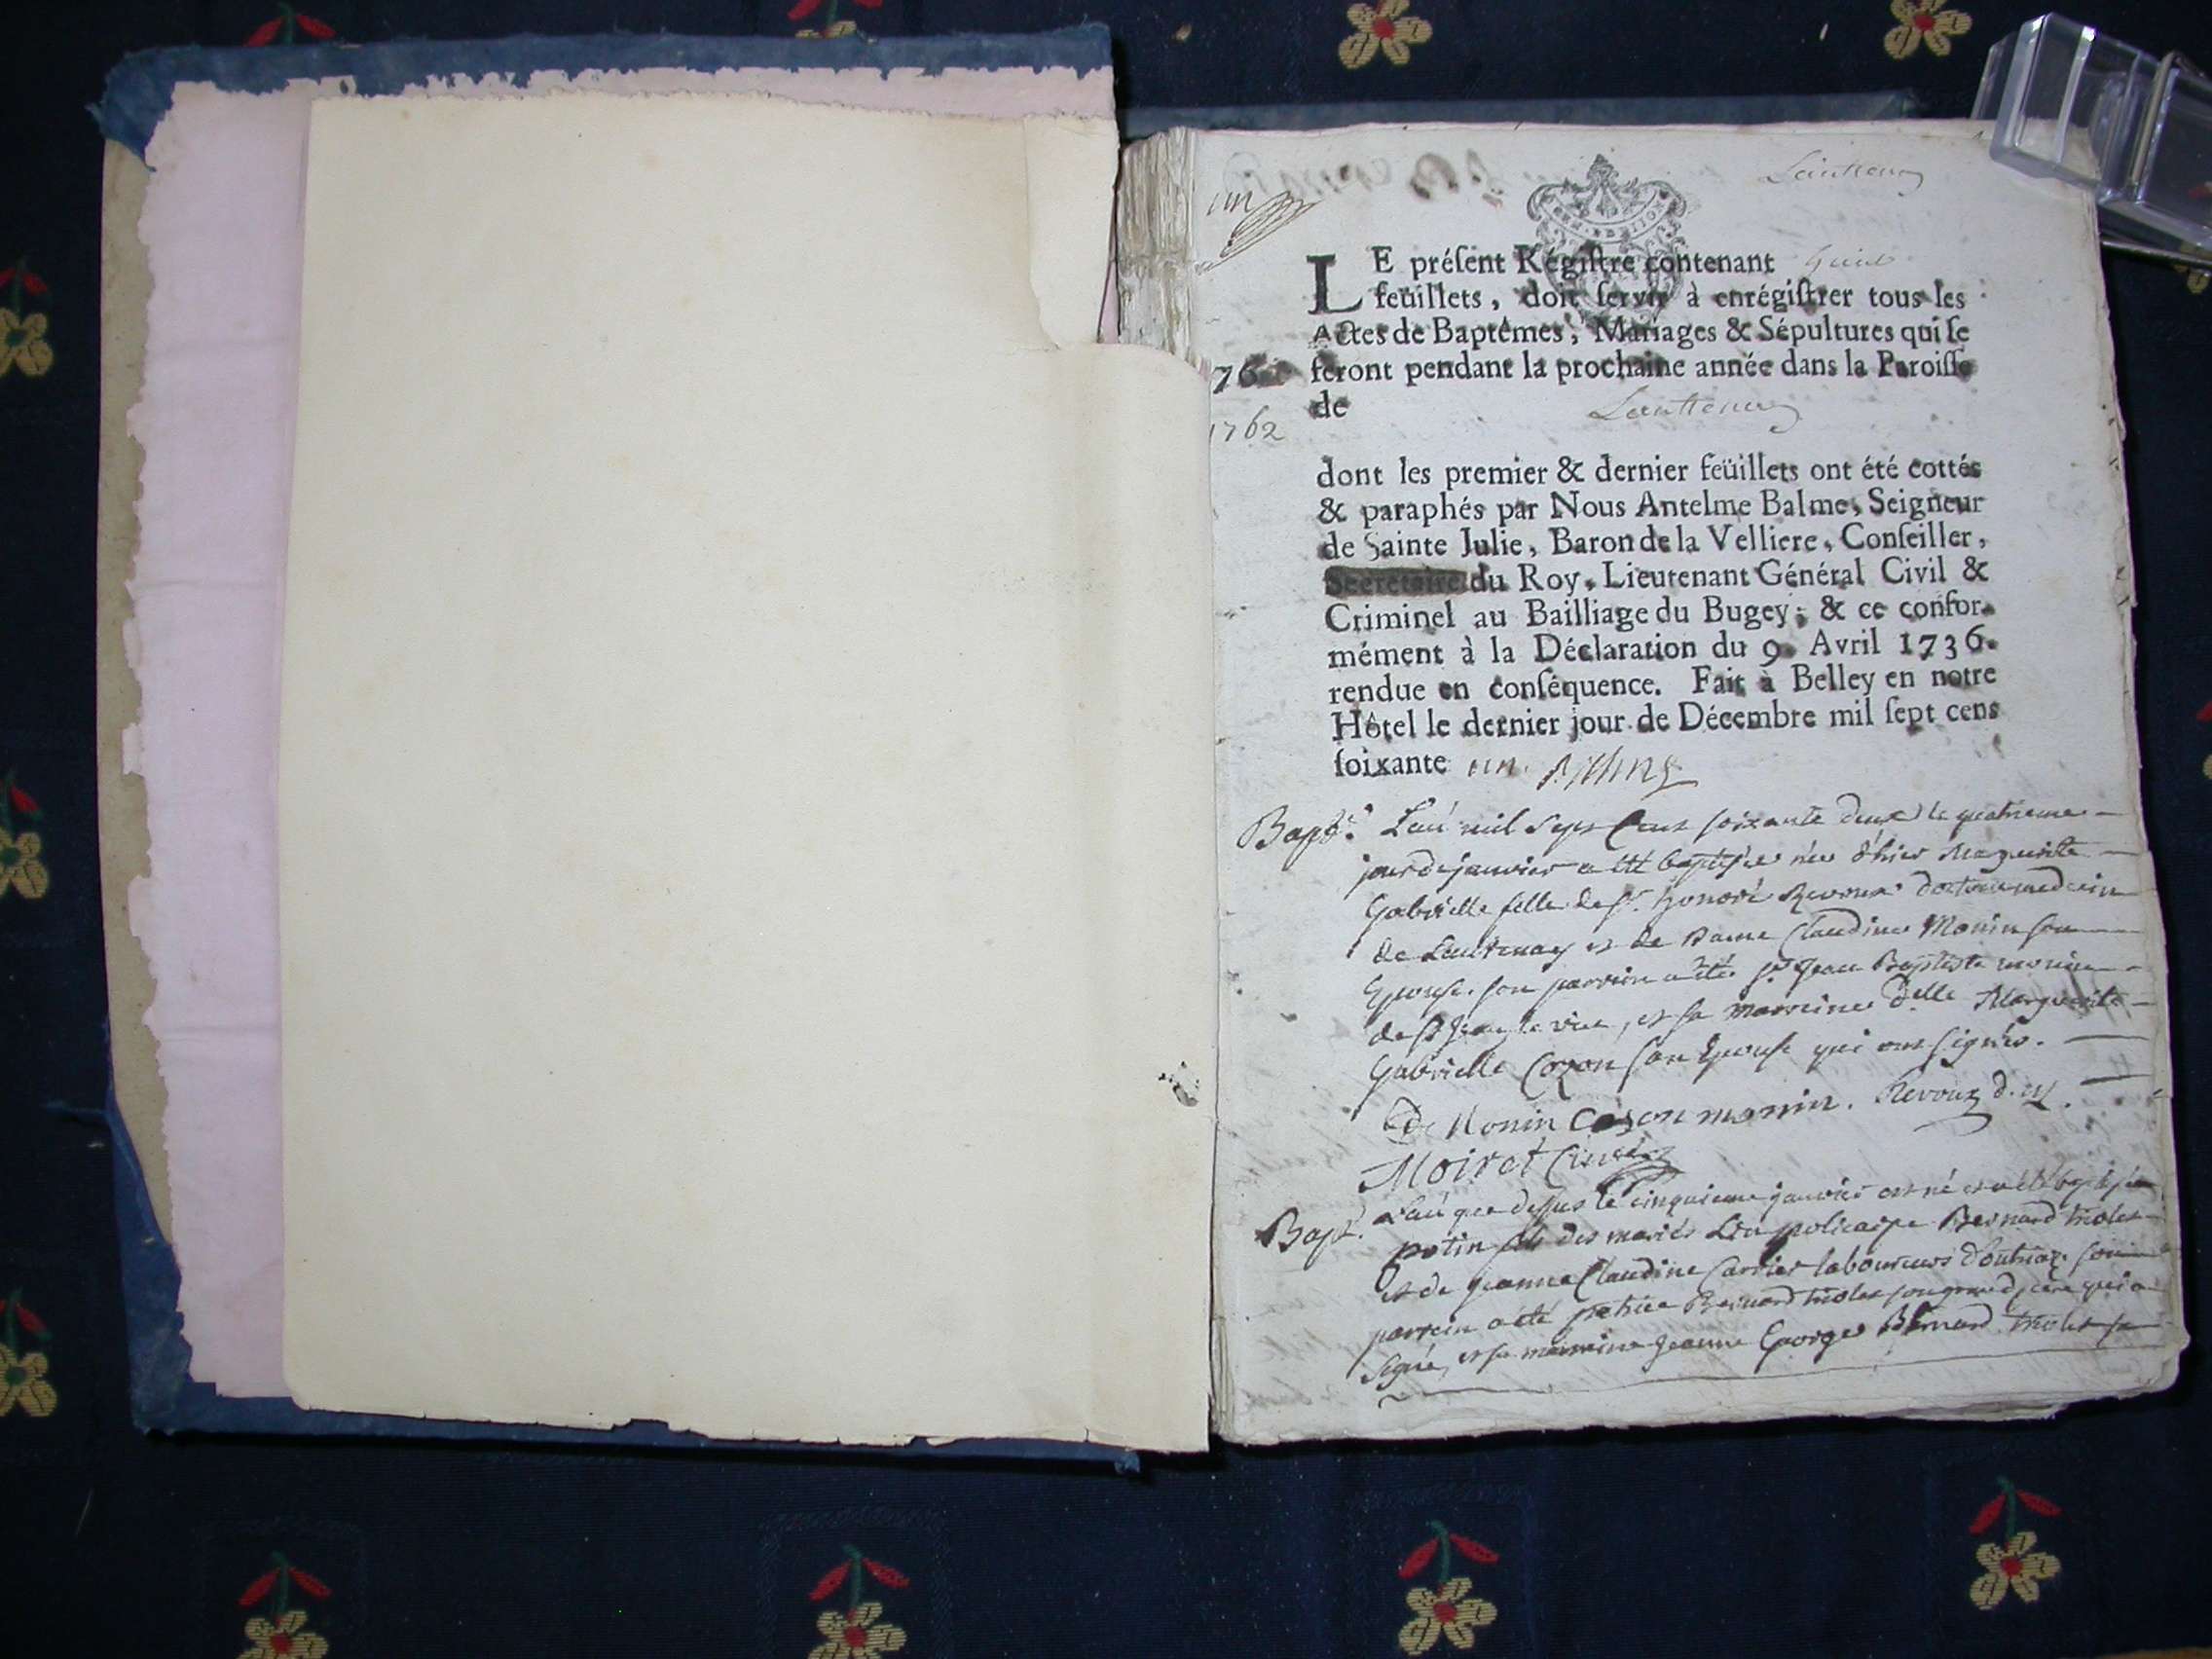 un
Lantenay
LE préſent Régiſtre contenant huit
feüillets, doit ſervir à enrégiſtrer tous les
Actes de Baptêmes, Mariages & Sépultures qui ſe
feront pendant la prochaine année dans la Paroiſſe
de Lantenay
1762
dont les premier & dernier feüillets ont été cottés
& paraphés par Nous Antelme Balme, Seigneur
de Sainte Julie, Baron de la Velliere, Conſeiller,
Secretaire du Roy, Lieutenant Général Civil &
Criminel au Bailliage du Bugey; & ce confor-
mément à la Déclaration du 9. Avril 1736.
rendue en conſéquence. Fait à Belley en notre
Hôtel le dernier jour de Décembre mil ſept cens
ſoixante un.
Bapt. L'an mil sept cens soixante deux le quatrieme
jour de janvier a été baptisée née d'hier Marguerite
Gabrielle fille de Sr. honoré Revoux docteur medecin
de Lantenay et de Dame Claudine Monin son
Epouse. son parrein a été Sr. Jean Baptiste monin
de St Jean le vieux, et sa marreine Delle Marguerite
Gabrielle Cozon son Epouse qui ont signés.
Monin Cozon monin. Revoux d. m.
Moiret Curé
Bapt. L'an que dessus le cinquieme janvier est né et a été baptisé
potin fils des mariés policarpe Bernard
et de jeanne Claudine Carrier laboureurs d'outriaz son
parrein a été Bernard son grand pere qui a
signé, et sa marreine jeanne George Bernard sa